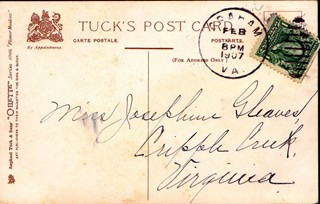 TUCK'S POST CARD
CARTE POSTALE.
POSTKARTE.
(FOR ADDRESS ONLY)
By Appointment.
GRAHAM
FEB
8PM
1907
VA.
Raphael Tuck & Sons' "OILETTE"
ART PUBLISHERS TO THEIR MAJESTIES THE KING & QUEEN
Miss Josephine Gleaves,
Cripple Creek,
Virginia.